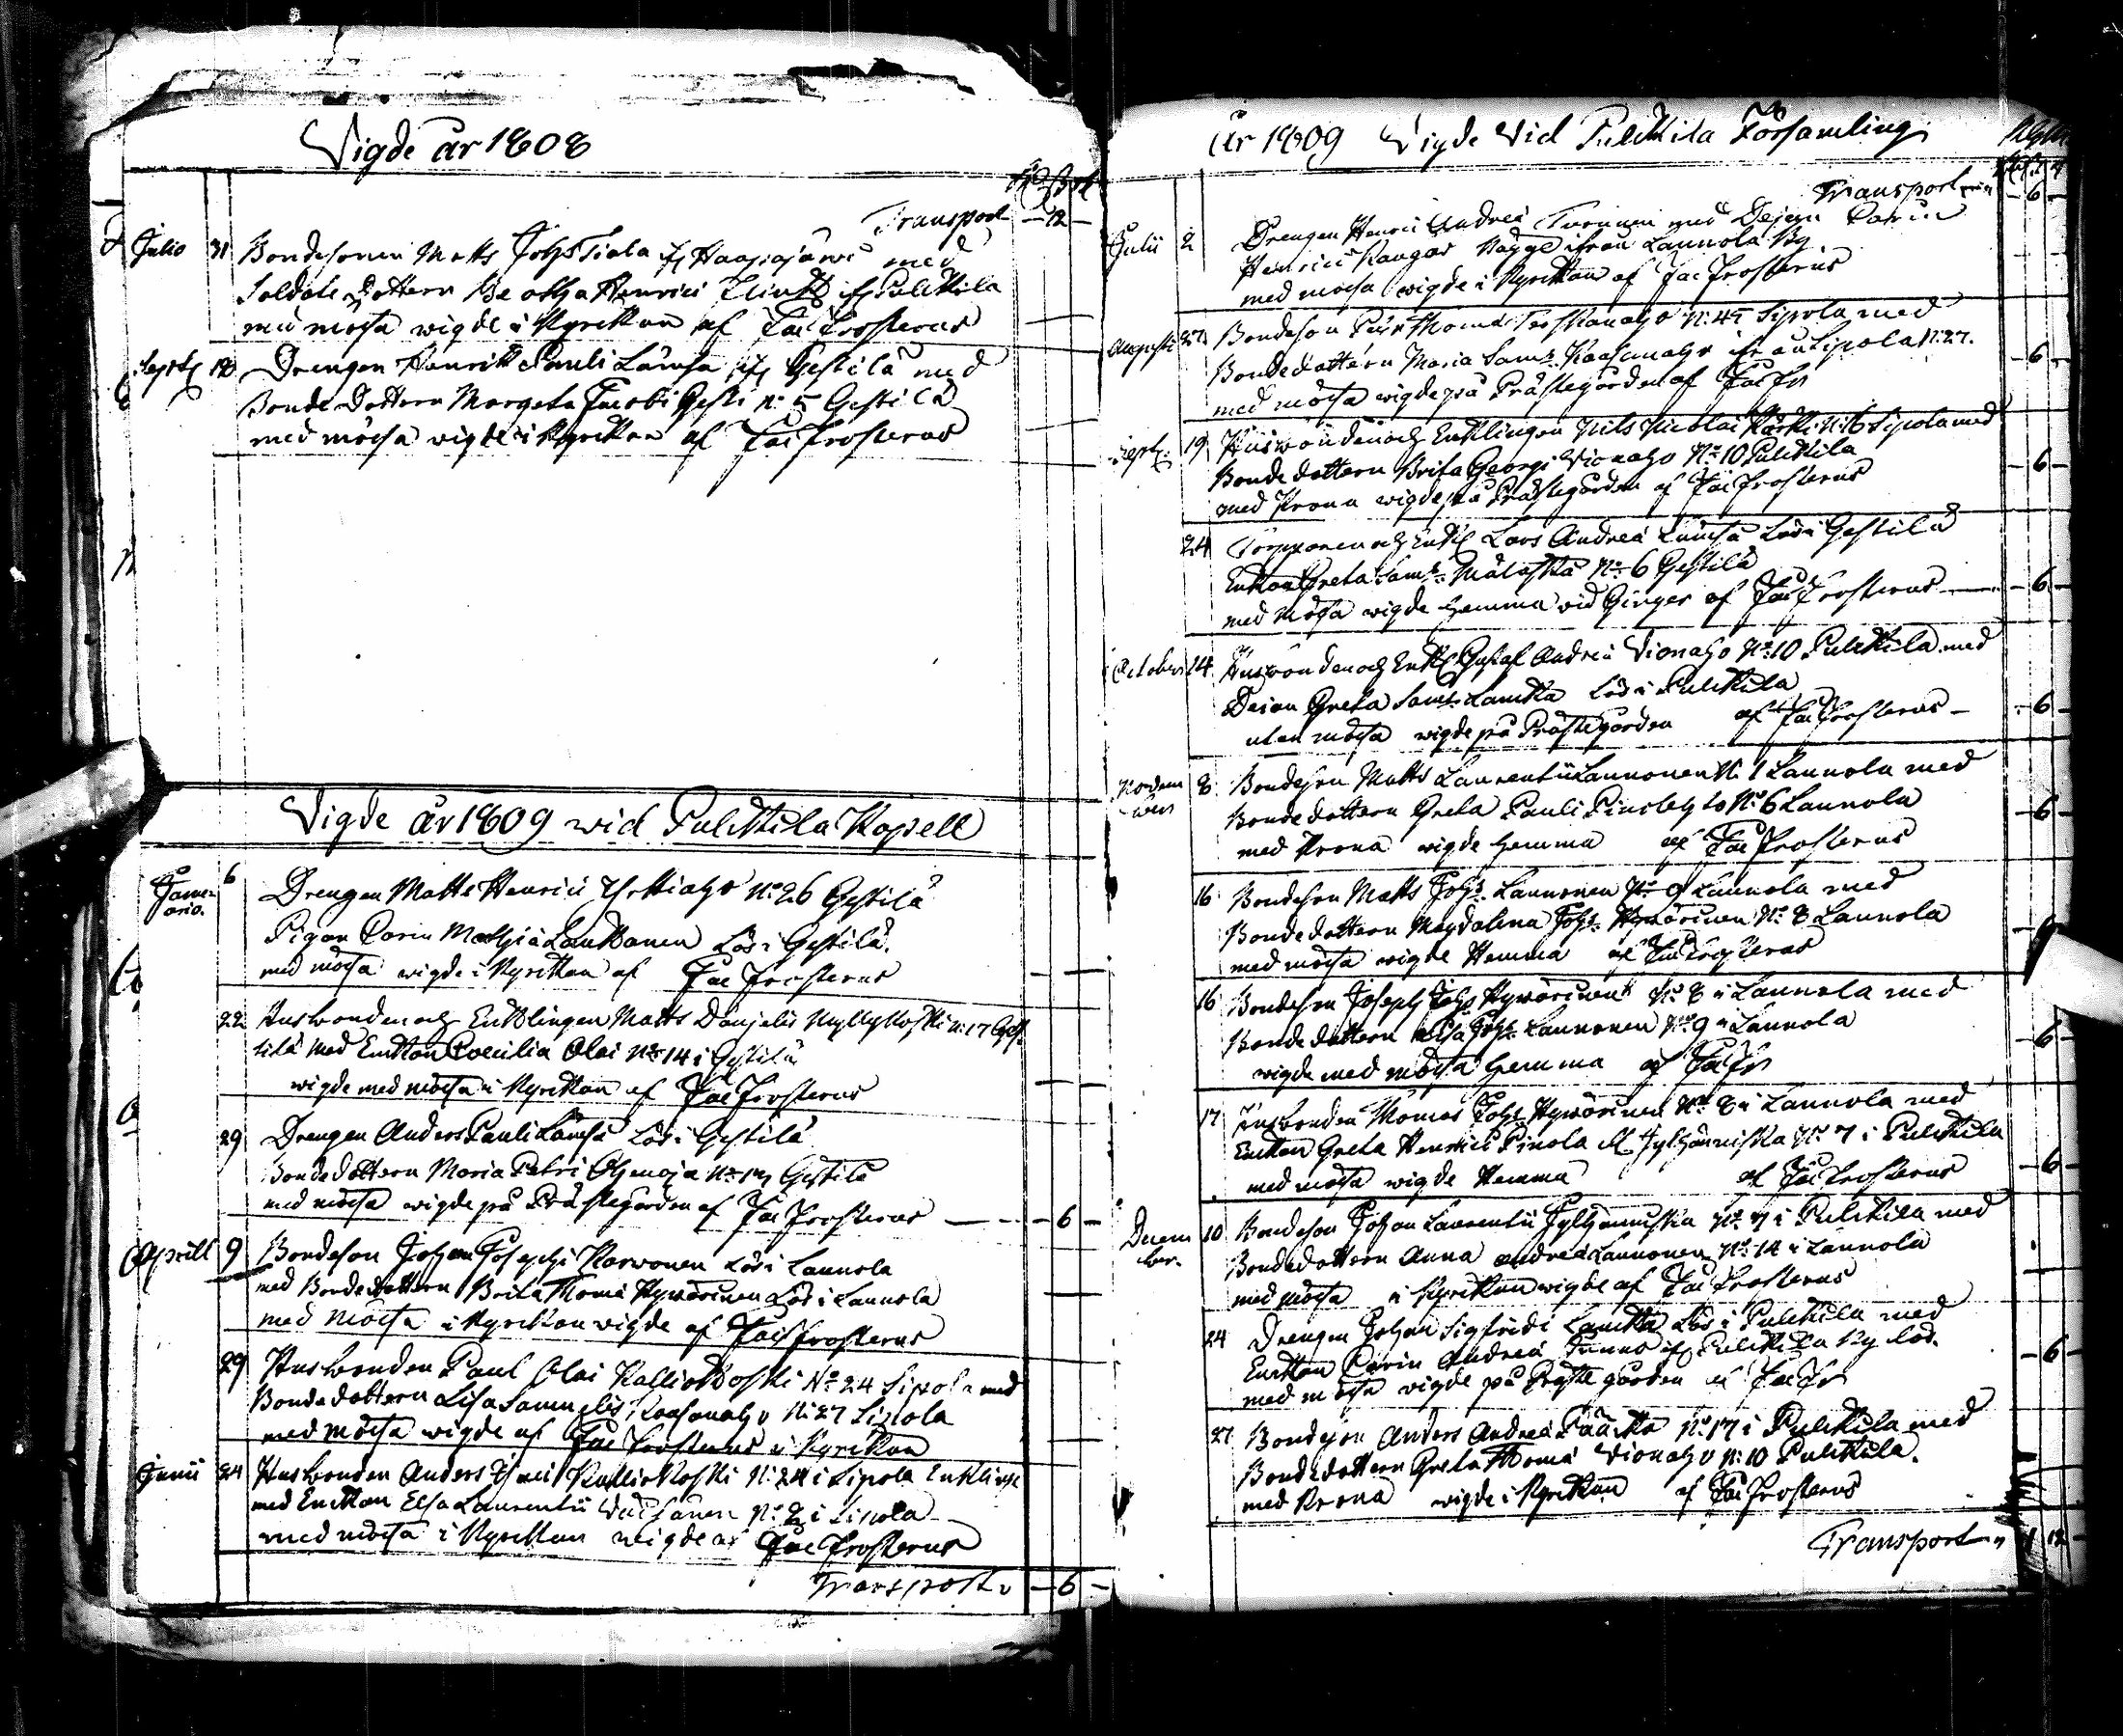 Vigde år 1808
Transport — 12 —
Julio 31 Bondesonen Matts Johs Tiala if Haapajärvi med
Soldate Dottern Beatha Henrici if Pulkkila
med mössa wigde i Kyrkan af Jac Frosterus
Sept 18 Drengen Henrik Pauli Lämsä if Gestilä med
Bonde Dottern Margeta Jacobi Gesti N: 5 Gestilä
med mössa wigde i Kyrkan af Jac Frosterus
Vigde år 1809 wid Pulkkila Kapell
Januario. 6 Drengen Matts Henrici No 26 Gestilä
Pigan Carin Mathiæ Laukkanen Lös i Gestilä.
med mössa wigde i Kyrkan af Jac Frosterus
22 Husbonden och Enklingen Matts Danjelis Myllykoski N: 17 Gestilä
med Enkan Cæcilia Olai No 14 i Gestilä
wigde med mössa i Kyrkan af Jac Frosterus
29 Drengen Anders Pauli Lämsä Lös i Gestilä
Bondedottern Maria Petri No Gestilä
med mössa wigde på Prästegården af Jac Frosterus — 6 —
Aprill 9 Bondeson Johan Josephi Karwonen Lös i Lannola
med Bondedottern Brita Thomæ Hywärinen Lös i Lannola
med Mössa i Kyrkan wigde af Jac Frosterus
29 Husbonden Paul Olai Kalliokoski No 24 Sipola med
Bondedottern Lisa Samuelis N: 27 Sipola
med mössa wigde af Jac Frosterus i Kyrkan
Junii 24 Husbonden Anders Kalliokoski N: 24 i Sipola Enkling
med Enkan Elsa Laurentii N: 2 i Sipola
med mössa i Kyrkan wigde af Jac Frosterus
Transport — 6 —
År 1809 Vigde Vid Pulkkila Församling
Transport — 6 —
Julii 2 Drengen Henric Andreæ Turunen med Dejan Carin
Henrici Kangas ifrån Lannola By.
med mössa wigde i Kyrkan af Jac Frosterus
Augusti 27 Bondeson Thomæ N: 45 Sipola med
Bondedottern Maria Saml. från Sipola N: 27. — 6 —
med mössa wigde på Prästegården af Jac Fr
Sept. 19 Husbonden och Enklingen Nils Nicolai Kärki N: 6 Sipola med
Bondedottern Brita Georgi Vionaho No 10 Pulkkila — 6 —
med Krona wigde på Prästegården af Jac Frosterus
24 Torpparen och Enkl Lars Andreæ Lämsä Lös i Gestilä
Enkan Greta Saml. Mälaskä No 6 Gestilä
med Mössa wigde hemma vid af Jac Frosterus — 6 —
October 14 Husbonden och Enkl Gustaf Andreæ Vionaho No 10 Pulkkila med
Dejan Greta Saml. Lamkka Lös i Pulkkila
utan mössa wigde på Prästegården af Jac Frosterus — 6 —
November 8 Bondeson Matts Laurentii Lannonen N: 1 Lannola med
Bondedottern Greta Pauli Pinolehto No 6 Lannola — 6 —
med Krona wigde hemma af Jac Frosterus
16 Bondeson Matts Johs. Lannonen No 9 Lannola med
Bondedottern Magdalena Johs. Hywärinen No 8 Lannola
med mössa wigde Hemma af Jac Frosterus
16 Bondeson Joseph Johs Hywärinen No 8 i Lannola med
Bondedottern Elsa Johs. Lannonen No 9 i Lannola — 6 —
wigde med mössa hemma af Jac Fr
17 Husbonden Thomas Johs Hywärinen No 8 i Lannola med
Enkan Greta Henrici Pinola No 7 i Pulkkila
med mössa wigde Hemma af Jac Frosterus — 6 —
December. 10 Bondeson Johan Laurentii No 7 i Pulkkila med
Bondedottern Anna Andreæ Lannonen No 14 i Lannola
med mössa i Kyrkan wigde af Jac Frosterus
24 Drengen Johan Sigfridi Lamkka Lös i Pulkkila med
Enkan Carin Andreæ if Pulkkila By lös. — 6 —
med mössa wigde på Prästegården af Jac Fr
27 Bondeson Anders Andreæ No 17 i Pulkkila med
Bondedottern Greta Thomæ Vionaho N: 10 Pulkkila.
med Krona wigde i Kyrkan af Jac Frosterus
Transport 1 12 —